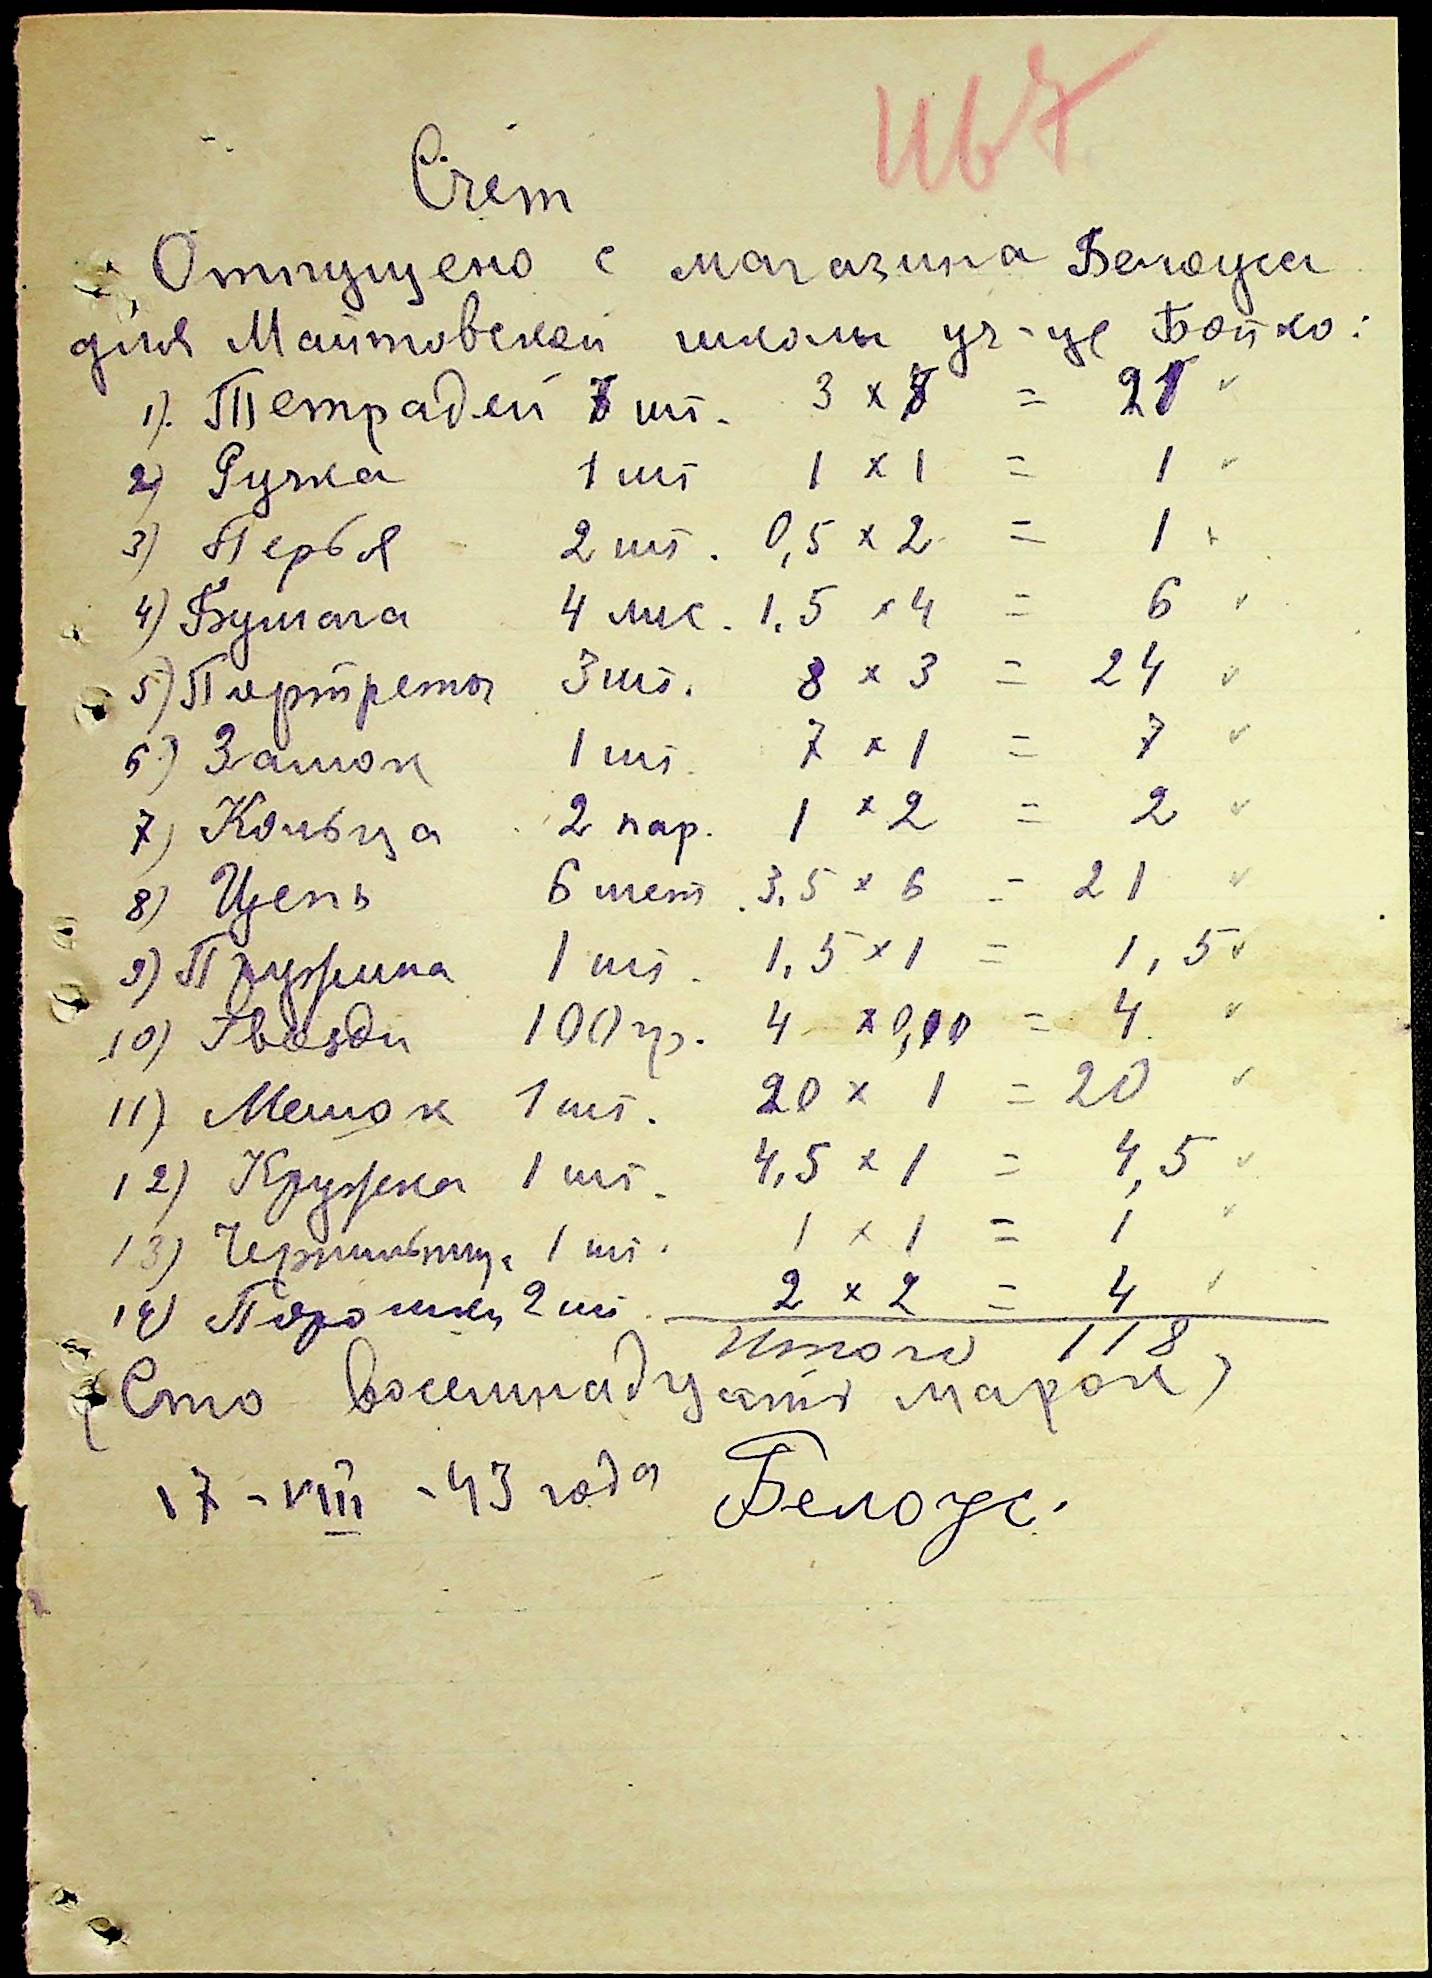 Счет
Отпущено с магазина Белоуса
для Маитовской школы уч-це Бойко:
1). Тетрадей 7 шт. 3 x 7 = 21
2) Ручка 1 шт 1 x 1 = 1
3) Перья 2 шт. 0,5 x 2 = 1
4) Бумага 4 лис. 1,5 x 4 = 6
5) Портреты 3 шт. 8 x 3 = 24
6) Замок 1 шт. 7 x 1 = 7
7) Кольца 2 пар. 1 x 2 = 2
8) Цепь 6 мет. 3,5 x 6 = 21
9) Пружина 1 шт. 1,5 x 1 = 1,5
10) Гвозди 100 гр. 4 x = 4
11) Мешок 1 шт. 20 x 1 = 20
12) Кружка 1 шт. 4,5 x 1 = 4,5
13) Чернильница 1 шт. 1 x 1 = 1
14) Порошки 2 шт. 2 x 2 = 4
Итого 118
(Сто восемнадцать марок)
17-VIII-43 года Белоус.